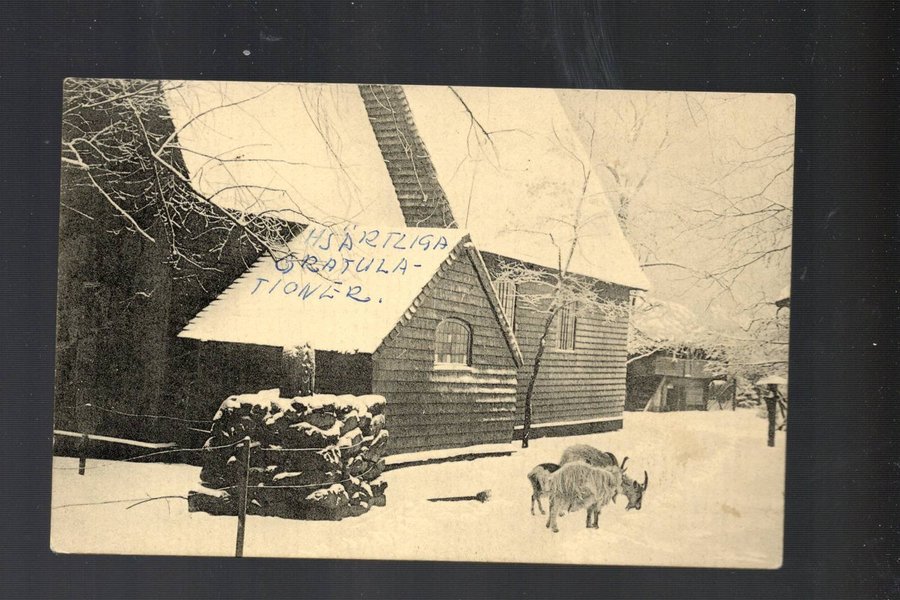 HJÄRTLIGA
GRATULA-
TIONER.